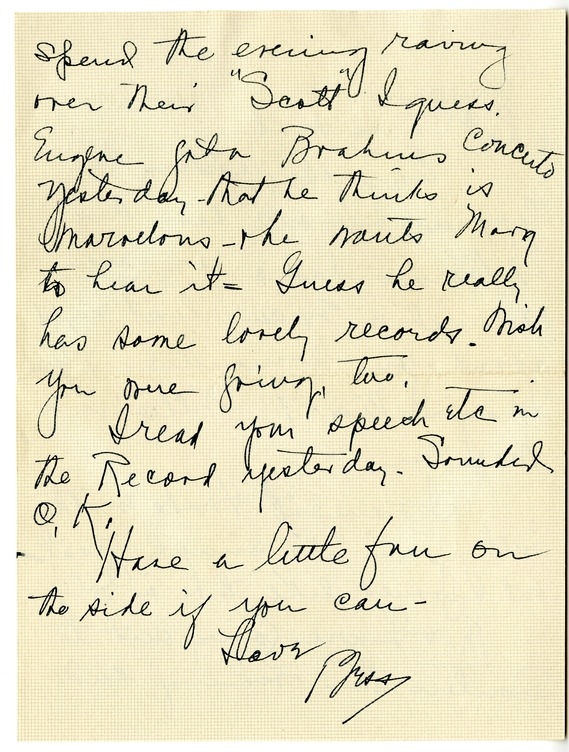 spend the evening raving
over their "Scott" I guess.
Eugene got a Brahms Concerto
yesterday - that he thinks is
marvelous - & he wants Mary
to hear it = Guess he really
has some lovely records. Wish
you were going, too.
I read your speech etc in
the Record yesterday. Sounded
O.K.
Have a little fun on
the side if you can -
Love
Bess